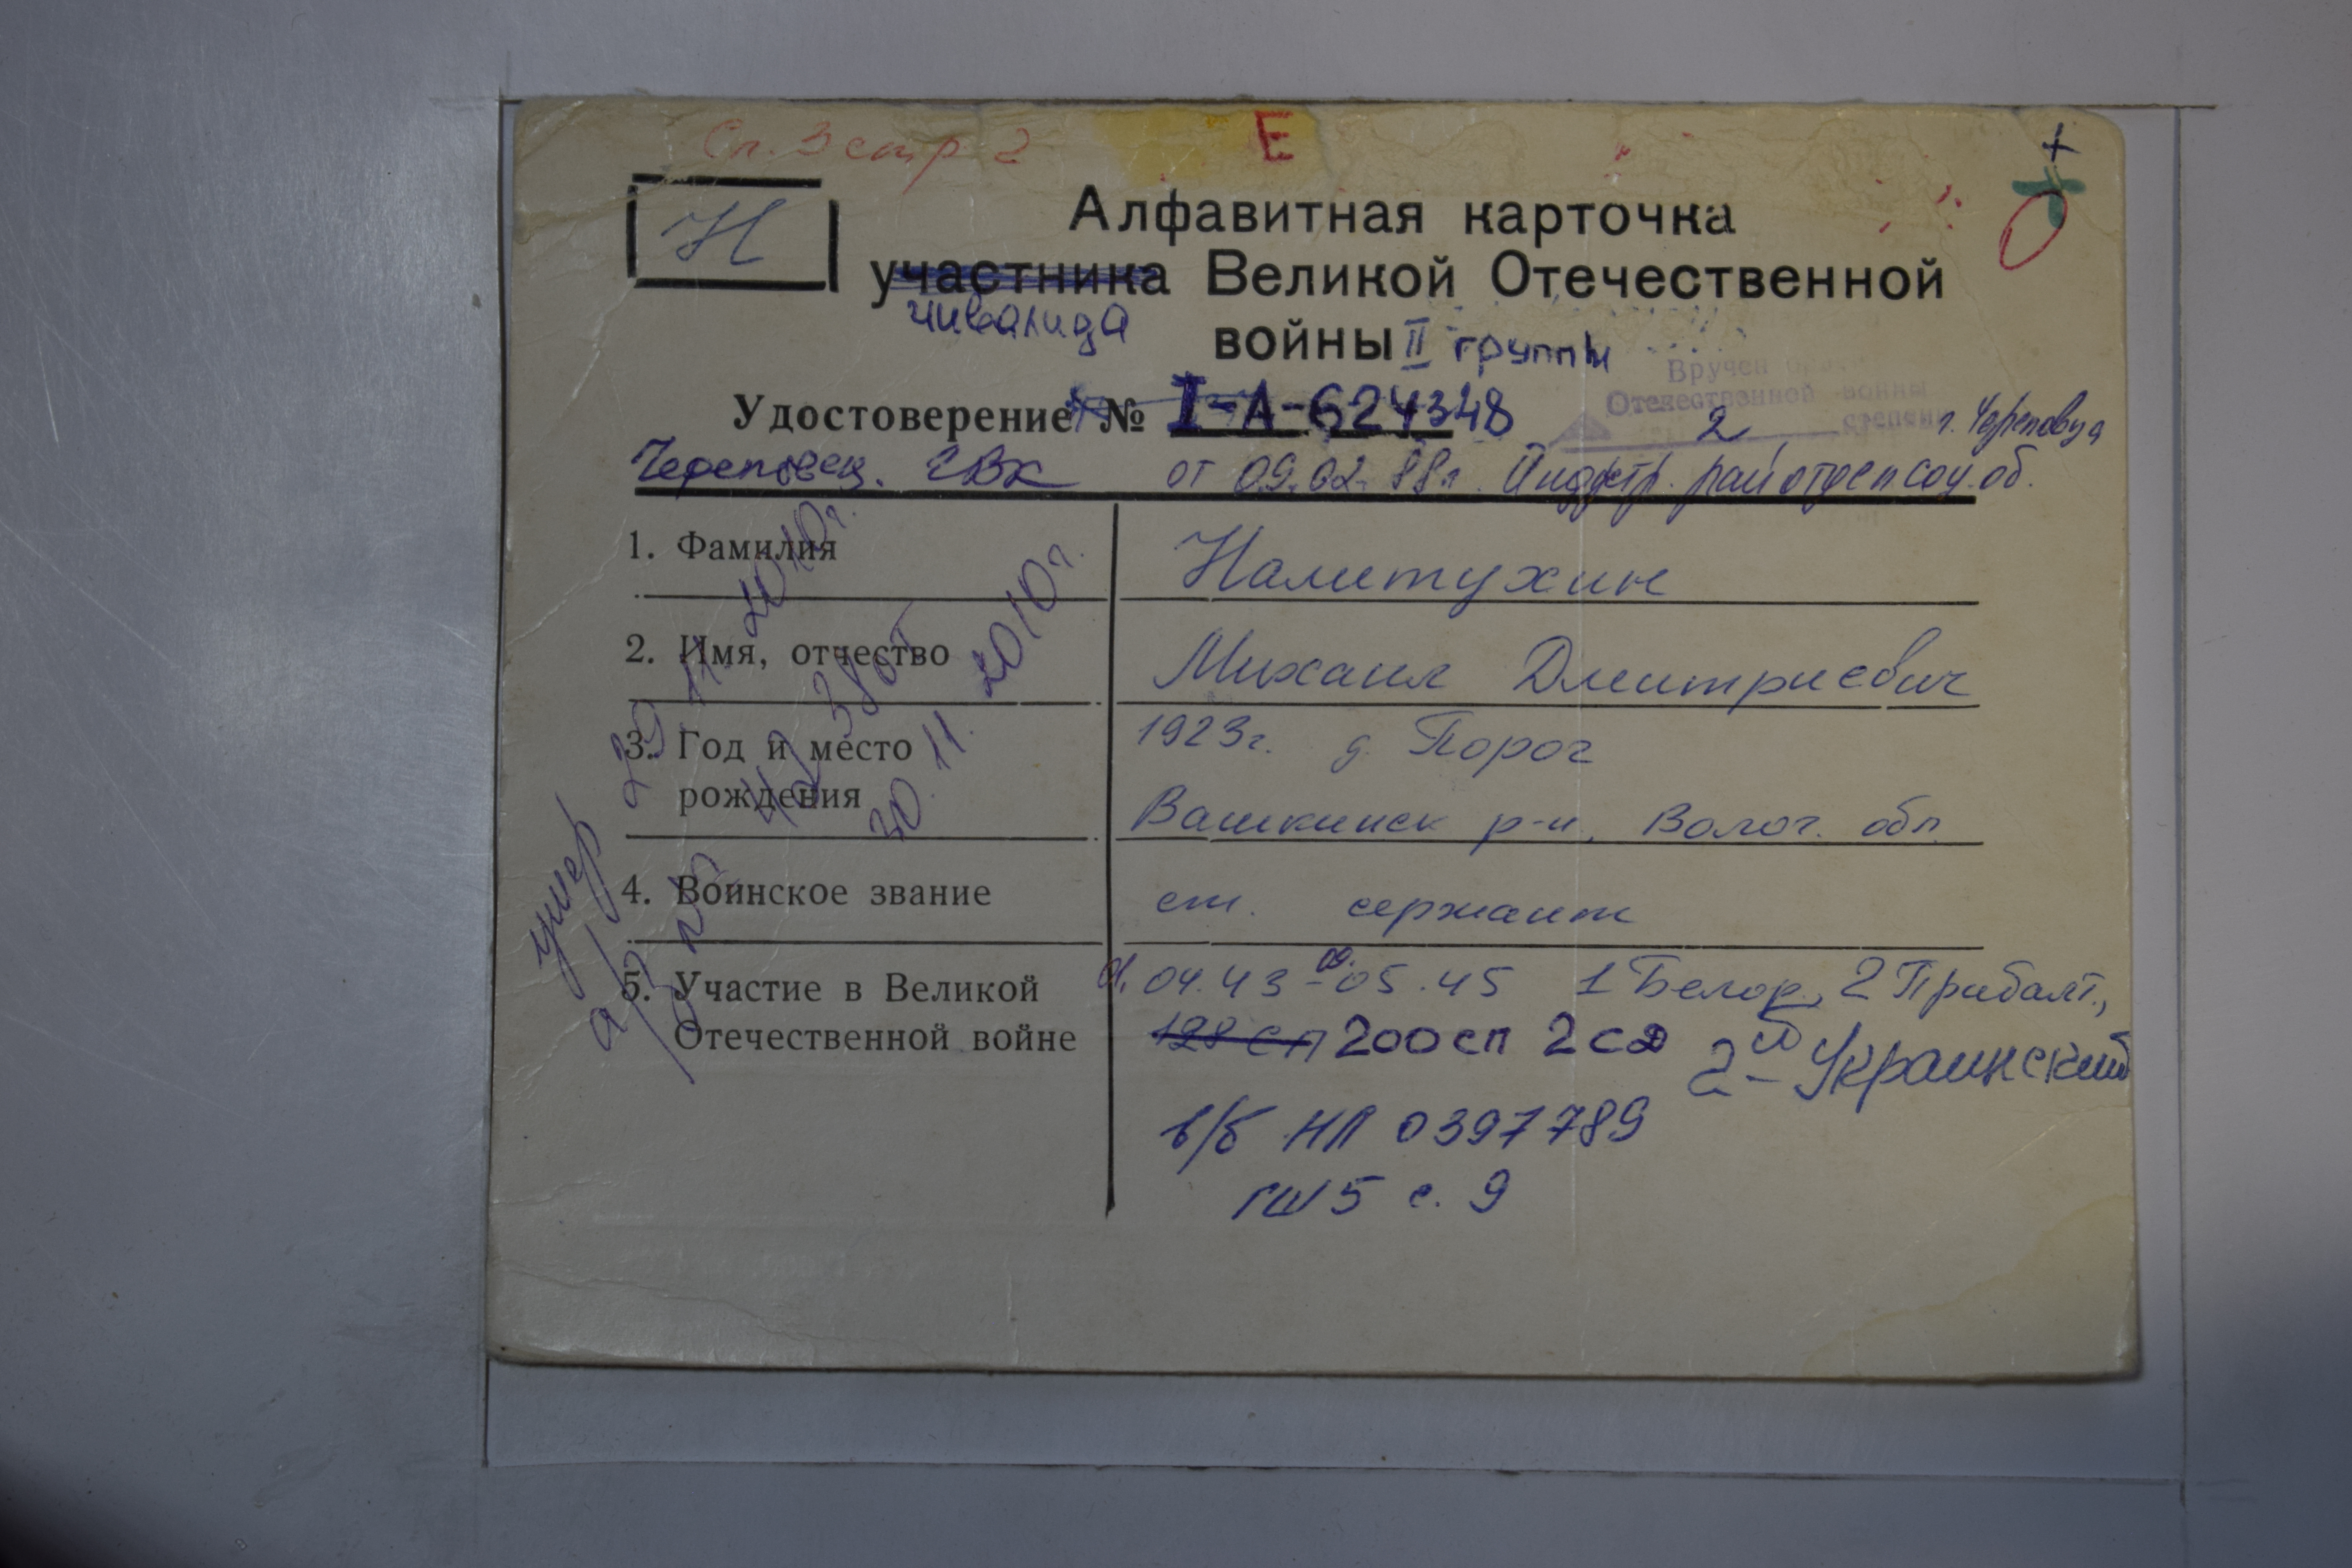 Сп. 3 стр 2
Е
+
Н
Алфавитная карточка
участника Великой Отечественной
инвалида
войны II группы
Вручен
Отечественной войны
2 степени
Удостоверение № I-А-624348
г. Череповца
Череповец. ГВК от 09.02.88г. Индустр. райотдел соц. об.
1. Фамилия Налитухин
2. Имя, отчество Михаил Дмитриевич
3. Год и место 1923г. д. Порог
рождения Вашкинск р-н, Волог. обл
4. Воинское звание ст. сержант
5. Участие в Великой 04.43-09.05.45 1 Белор., 2 Прибалт.,
Отечественной войне 128 сп 200 сп 2 сд 2-й Украинский
в/б НЛ 0397789
ГШ 5 с. 9
умер 29 11 2010г.
30.11.2010г.